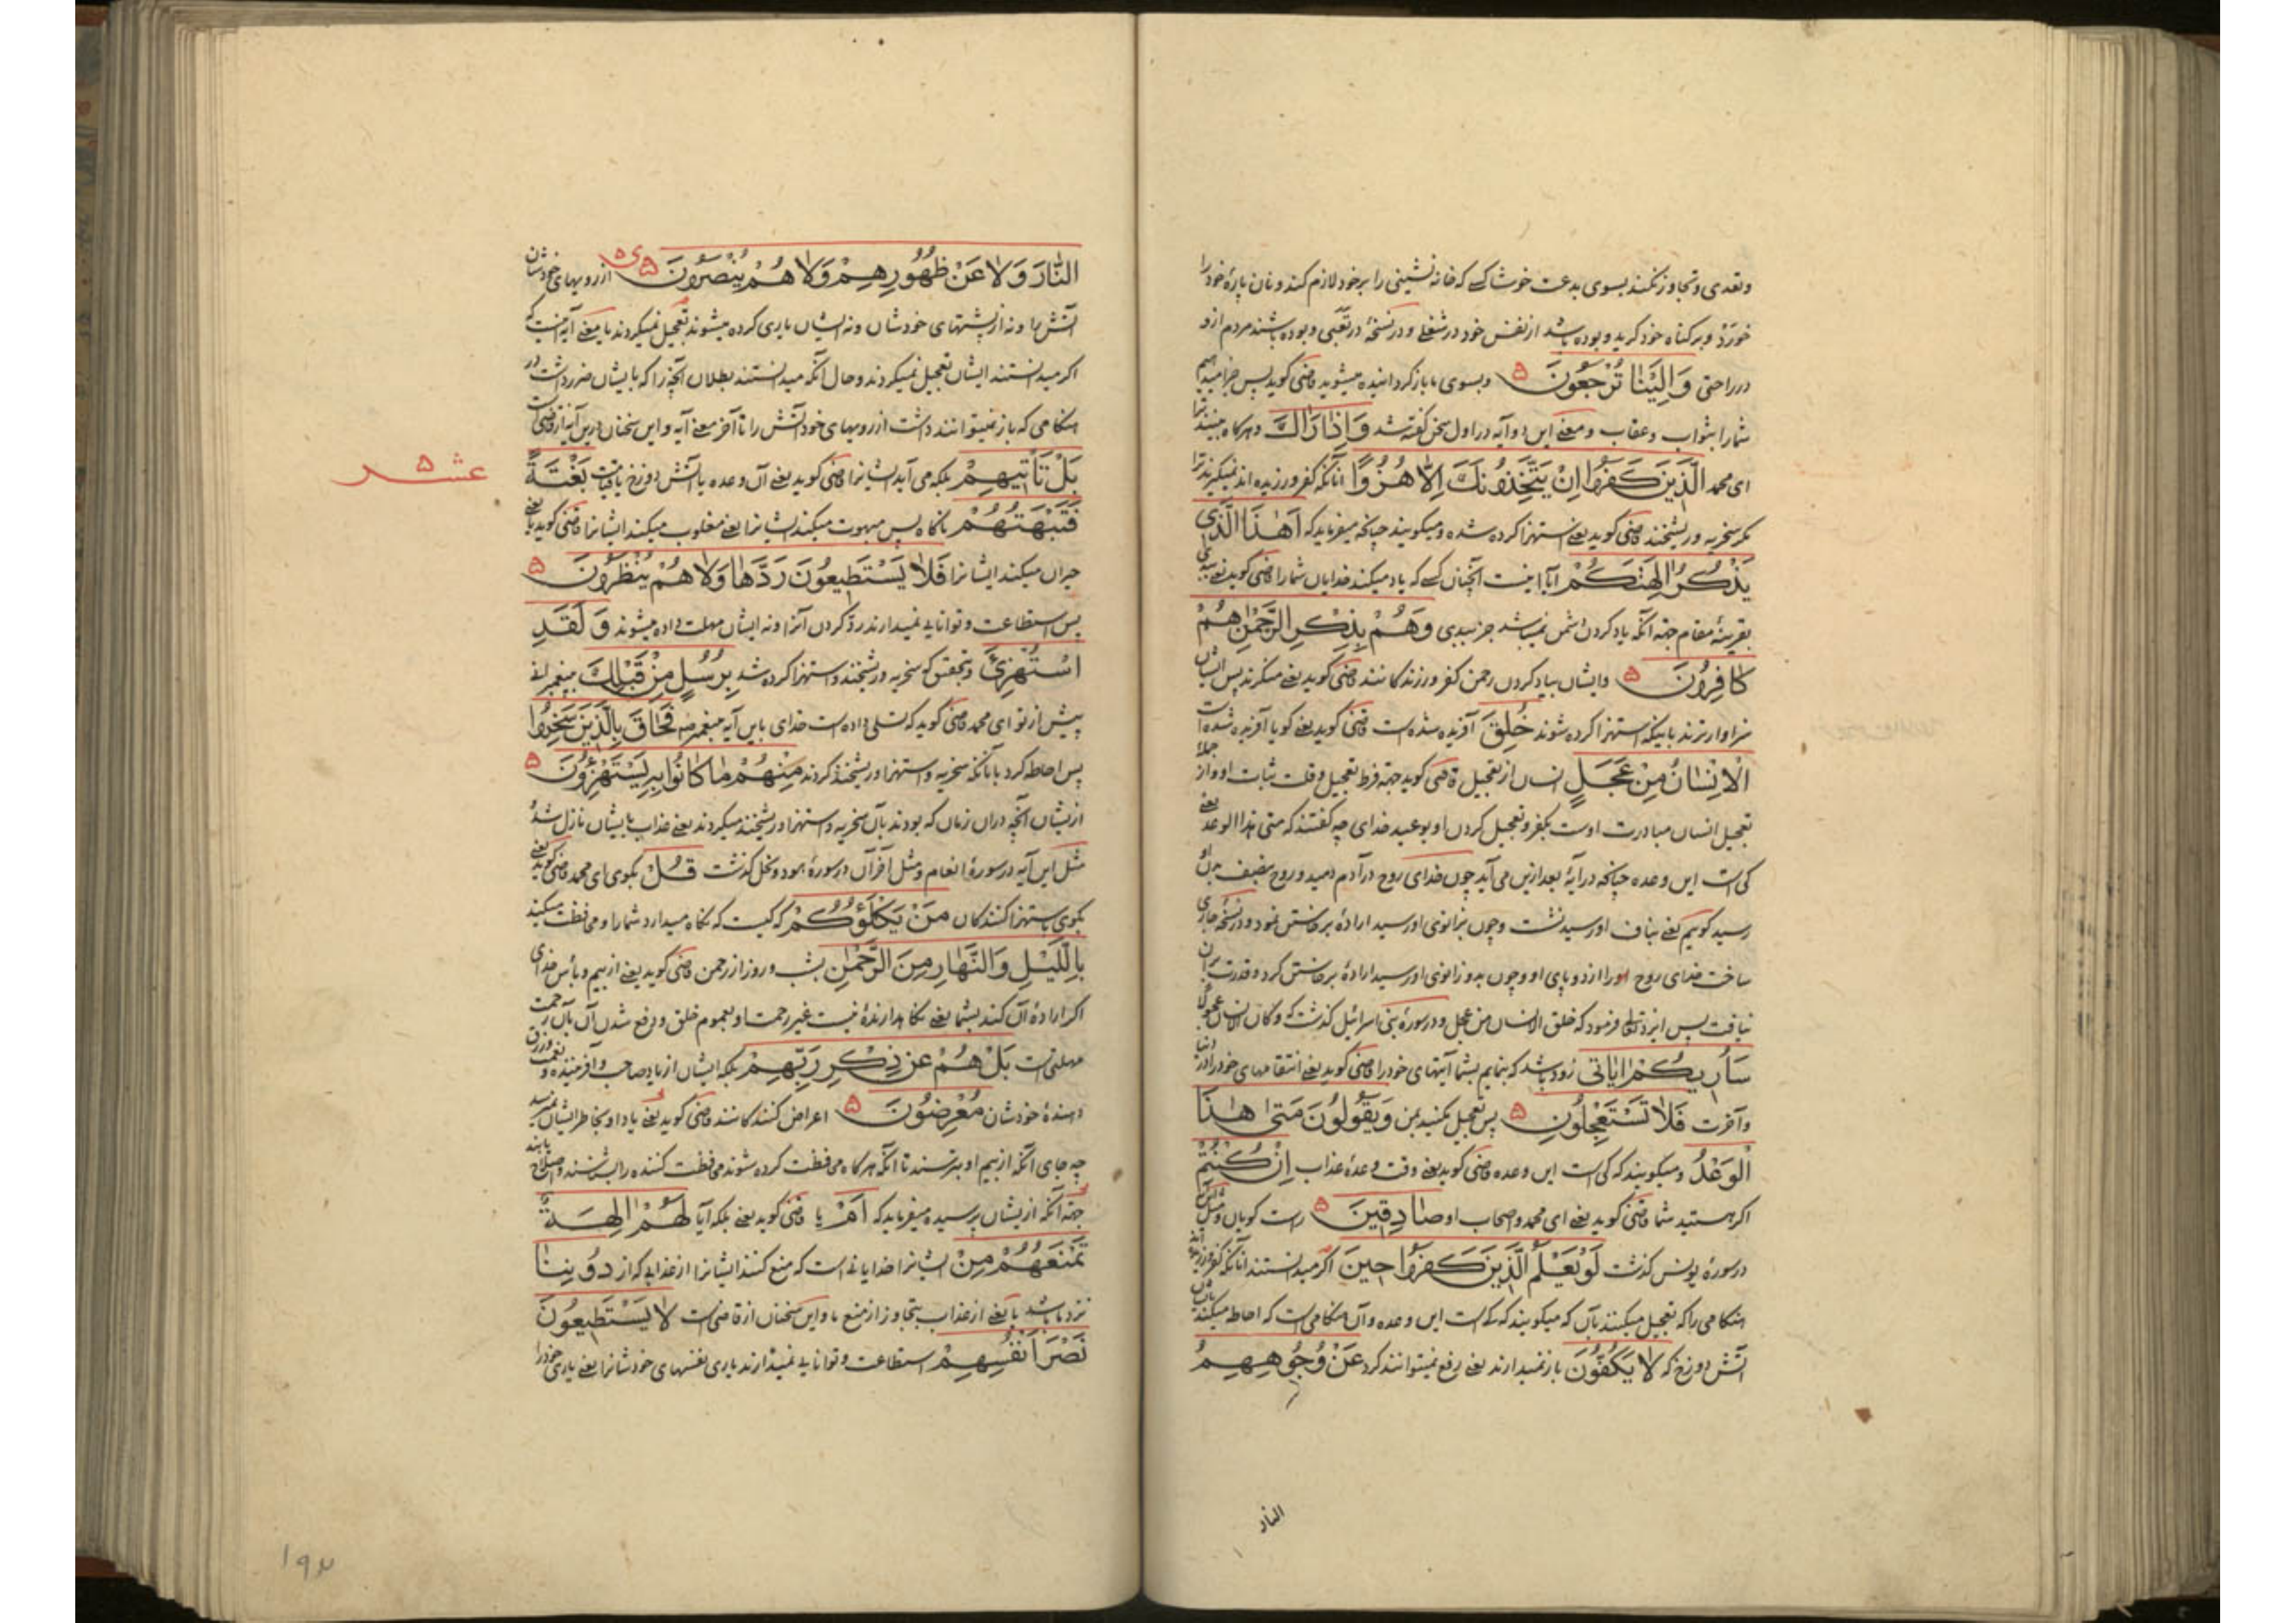 وتعدی وتجاوز نکند بسوی بدعت خوشا کسی که خانه نشینی را بر خود لازم کند ونان پارهٔ خود را
خورد وبر کناه خود کرید وبوده باشد از نفس خود در شغلی ودر نسخهٔ در تعبی وبوده باشند مردم ازو
در راحتی وَاِلَیْنَا تُرْجَعُونَ ۵ وبسوی ما باز کردانیده میشوید قاضی کوید پس جزا میدهیم
شما را بثواب وعقاب ومعنی این دو آیه در اول سخن کفته شد وَاِذَا رَاٰكَ وهرکاه بینند ترا
ای محمد الَّذِینَ كَفَرُوا اِنْ یَتَّخِذُونَكَ اِلَّا هُزُوًا آنانکه کفر ورزیده اند نمیکیرند ترا
مکر سخریه وریشخند قاضی کوید یعنی استهزا کرده شده ومیکویند چنانچه میفرماید که اَهٰذَا الَّذِی
یَذْكُرُ اٰلِهَتَكُمْ آیا اینست آنچنان کسی که یاد میکند خدایان شما را قاضی کوید یعنی ببدی
بقرینهٔ مقام جهة آنکه یاد کردن دشمن نمیباشد جز ببدی وَهُمْ بِذِكْرِ الرَّحْمٰنِ هُمْ
كَافِرُونَ ۵ وایشان بیاد کردن رحمن کفر ورزندکانند قاضی کوید یعنی منکرند پس ایشان
سزاوارترند باینکه استهزا کرده شوند خُلِقَ آفریده شده است قاضی کوید یعنی کویا آفریده شده است
الْاِنْسَانُ مِنْ عَجَلٍ انسان از تعجیل قاضی کوید جهة فرط تعجیل وقلت ثبات او واز جملهٔ
تعجیل انسان مبادرت اوست بکفر وتعجیل کردن او بوعید خدای چه کفتند که متی هذا الوعد یعنی
کی است این وعده چنانچه در آیهٔ بعد ازین می آید چون خدای روح در آدم دمید وروح بنصف بدن او
رسید کوییم یعنی بناف او رسید نشست وچون بزانوی او رسید ارادهٔ برخاستن نمود ودر نسخهٔ جاری
ساخت خدای روح او را از دو پای او وچون بدو زانوی او رسید ارادهٔ برخاستن کرد وقدرت بران
نیافت پس ایزد تعالی فرمود که خلق الانسان من عجل ودر سورهٔ بنی اسرائیل کذشت که وکان الانسان عجولا
سَاُرِیكُمْ اٰیَاتِی زود باشد که بنمایم بشما آیتهای خود را قاضی کوید یعنی انتقامهای خود را در دنیا
وآخرت فَلَا تَسْتَعْجِلُونِ ۵ پس تعجیل مکنید بمن وَیَقُولُونَ مَتٰی هٰذَا
الْوَعْدُ ومیکویند که کی است این وعده قاضی کوید یعنی وقت وعدهٔ عذاب اِنْ كُنْتُمْ
اکر هستید شما قاضی کوید یعنی ای محمد واصحاب او صَادِقِینَ ۵ راست کویان ومثل این آیه
در سورهٔ یونس کذشت لَوْ یَعْلَمُ الَّذِینَ كَفَرُوا حِینَ اکر میدانستند آنانکه کفر ورزیده اند
هنکامی را که تعجیل میکنند بآن که میکویند که کی است این وعده وآن هنکامی است که احاطه میکند بایشان
آتش دوزخ که لَا یَكُفُّونَ باز نمیدارند یعنی رفع نمیتوانند کرد عَنْ وُجُوهِهِمُ
النار
النَّارَ وَلَا عَنْ ظُهُورِهِمْ وَلَا هُمْ یُنْصَرُونَ ۵ از رویهای خودشان
آتش را ونه از پشتهای خودشان ونه ایشان یاری کرده میشوند تعجیل نمیکردند یا معنی آیه اینست که
اکر میدانستند ایشان تعجیل نمیکردند وحال آنکه میدانستند بطلان آنچیز را که بایشان ضرر داشت در
هنکامی که باز نمیتوانند داشت از رویهای خود آتش را تا آخر معنی آیه واین سخنان درین آیه از قاضی است
بَلْ تَاْتِیهِمْ بلکه می آید ایشانرا قاضی کوید یعنی آن وعده یا آتش دوزخ یا قیامت بَغْتَةً
عشر ۵
فَتَبْهَتُهُمْ ناکاه پس مبهوت میکند ایشانرا یعنی مغلوب میکند ایشانرا قاضی کوید یا یعنی
حیران میکند ایشانرا فَلَا یَسْتَطِیعُونَ رَدَّهَا وَلَا هُمْ یُنْظَرُونَ ۵
پس استطاعت وتوانایی نمیدارند رد کردن آنرا ونه ایشان مهلت داده میشوند وَلَقَدِ
اسْتُهْزِئَ وبتحقیق که سخریه وریشخند واستهزا کرده شد بِرُسُلٍ مِنْ قَبْلِكَ بپیغمبرانی
پیش از تو ای محمد قاضی کوید که تسلی داده است خدای باین آیه پیغمبر را فَحَاقَ بِالَّذِینَ سَخِرُوا
پس احاطه کرد بآنانکه سخریه واستهزا وریشخند کردند مِنْهُمْ مَا كَانُوا بِهِ یَسْتَهْزِؤُنَ ۵
ازیشان آنچه دران زمان که بودند بآن سخریه واستهزا وریشخند میکردند یعنی عذاب بایشان نازل شد و
مثل این آیه در سورهٔ انعام ومثل آخر آن در سورهٔ هود ونحل کذشت قُلْ بکوی ای محمد قاضی کوید یعنی
بکوی باستهزا کنندکان مَنْ یَكْلَؤُكُمْ که کیست که نکاه میدارد شما را ومحافظت میکند
بِاللَّیْلِ وَالنَّهَارِ مِنَ الرَّحْمٰنِ بشب وروز از رحمن قاضی کوید یعنی از بیم وبأس خدای
اکر ارادهٔ آن کند بشما یعنی نکاهدارندهٔ نیست غیر رحمت او بعموم خلق ودفع شدن آن بآن رحمت
مهلتی است بَلْ هُمْ عَنْ ذِكْرِ رَبِّهِمْ بلکه ایشان از یاد صاحب وآفریننده ونعمت ورزق
دهندهٔ خودشان مُعْرِضُونَ ۵ اعراض کنندکانند قاضی کوید یعنی یاد او بخاطر ایشان نمیرسد
چه جای آنکه از بیم او بترسند تا آنکه هرکاه محافظت کرده شوند محافظت کننده را بشناسند وصلاح یابند
جهة آنکه ازیشان پرسیده میفرماید که اَمْ یا قاضی کوید یعنی بلکه آیا لَهُمْ اٰلِهَةٌ
تَمْنَعُهُمْ مِنْ ایشانرا خدایانی است که منع کنند ایشانرا از عذابی که از دُونِنَا
نزد ما باشد یا یعنی از عذاب بتجاوز از منع ما واین سخنان از قاضی است لَا یَسْتَطِیعُونَ
نَصْرَ اَنْفُسِهِمْ استطاعت وتوانایی نمیدارند یاری نفسهای خودشانرا یعنی یاری خود را
۱۹۳